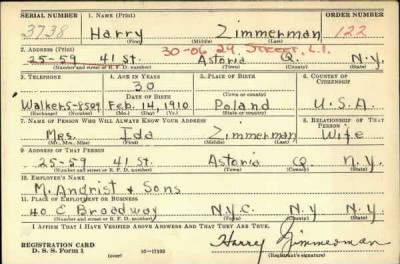 SERIAL NUMBER 1. NAME (Print) ORDER NUMBER
3738 Harry Zimmerman 122
(First) (Middle) (Last)
2. ADDRESS (Print) 30-06 29 STREET, L.I.
25-59 41 St. Astoria Q. N.Y.
(Number and street or R. F. D. number) (Town) (County) (State)
3. TELEPHONE 4. AGE IN YEARS 5. PLACE OF BIRTH 6. COUNTRY OF CITIZENSHIP
30
DATE OF BIRTH (Town or county)
Walker5-8509 Feb. 14, 1910 Poland U.S.A.
(Exchange) (Number) (Mo.) (Day) (Yr.) (State or country)
7. NAME OF PERSON WHO WILL ALWAYS KNOW YOUR ADDRESS 8. RELATIONSHIP OF THAT PERSON
Mrs. Ida Zimmerman Wife
(Mr., Mrs., Miss) (First) (Middle) (Last)
9. ADDRESS OF THAT PERSON
25-59 41 St. Astoria Q. N.Y.
(Number and street or R. F. D. number) (Town) (County) (State)
10. EMPLOYER'S NAME
M. Andrist & Sons
11. PLACE OF EMPLOYMENT OR BUSINESS
40 E Broadway N.Y.C. N.Y N.Y.
(Number and street or R. F. D. number) (Town) (County) (State)
I AFFIRM THAT I HAVE VERIFIED ABOVE ANSWERS AND THAT THEY ARE TRUE.
REGISTRATION CARD
D. S. S. Form 1 (over) 16-17105 Harry Zimmerman
(Registrant's signature)